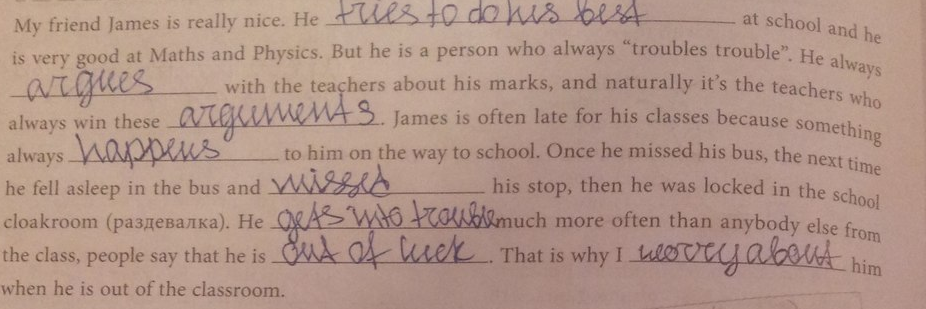 My friend James is really nice. He tries to do his best at school and he
is very good at Maths and Physics. But he is a person who always “troubles trouble”. He always
argues with the teachers about his marks, and naturally it’s the teachers who
always win these arguments. James is often late for his classes because something
always happens to him on the way to school. Once he missed his bus, the next time
he fell asleep in the bus and missed his stop, then he was locked in the school
cloakroom (раздевалка). He gets into trouble much more often than anybody else from
the class, people say that he is out of luck. That is why I worry about him
when he is out of the classroom.